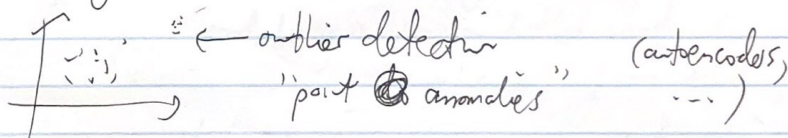 ← outlier detection
"point anomalies" (autoencoders, ...)